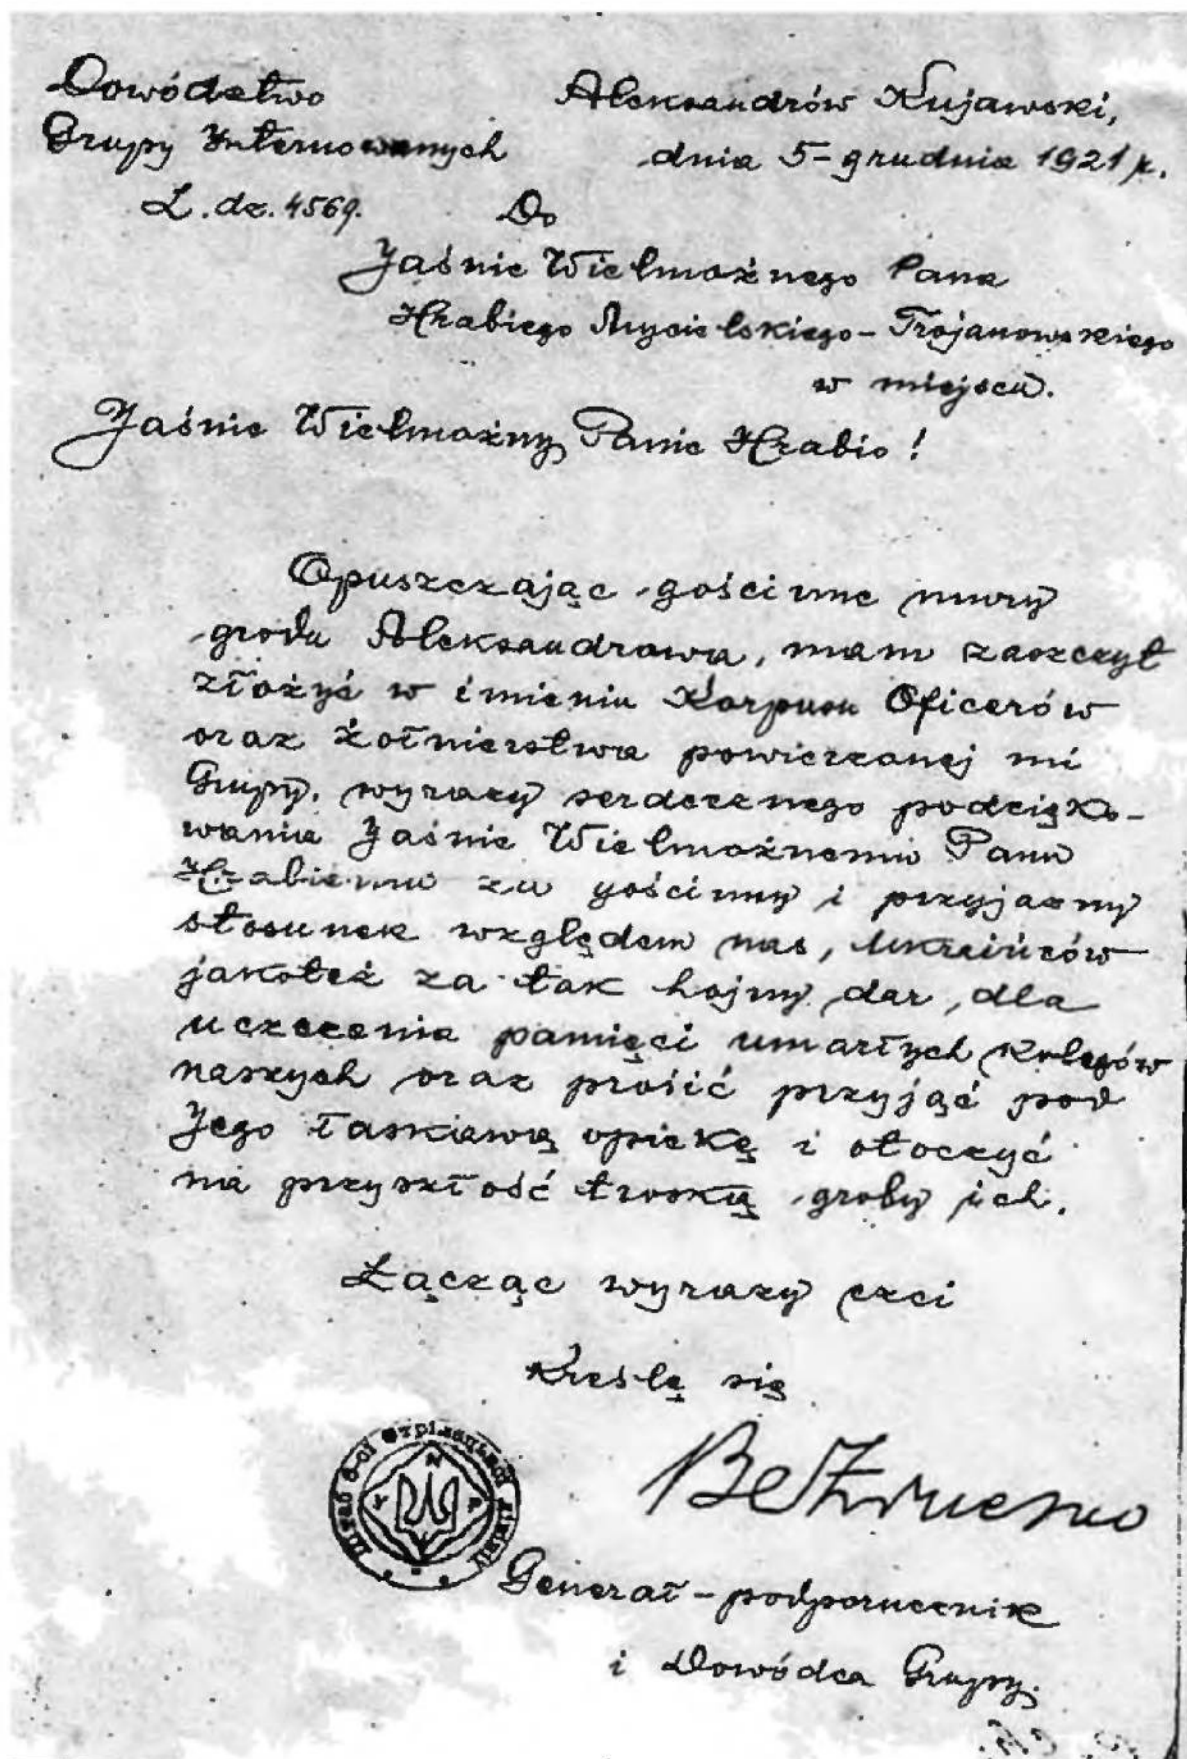 Dowództwo
Grupy Internowanych
L. dz. 4569.
Aleksandrów Kujawski,
dnia 5-grudnia 1921 r.
Do
Jaśnie Wielmożnego Pana
Hrabiego Mycielskiego-Trojanowskiego
w miejscu.
Jaśnie Wielmożny Panie Hrabio!
Opuszczając gościnne mury
grodu Aleksandrowa, mam zaszczyt
złożyć w imieniu Korpusu Oficerów
oraz żołnierstwa powierzanej mi
Grupy, wyrazy serdecznego podzięko-
wania Jaśnie Wielmożnemu Panu
Hrabiemu za gościnny i przyjazny
stosunek względem nas, Ukraińców
jakoteż za tak hojny dar, dla
uczczenia pamięci umarłych Kolegów
naszych oraz prosić przyjąć pod
Jego łaskawą opiekę i otoczyć
na przyszłość troską groby ich.
Łącząc wyrazy czci
Kreślę się
Bezruczko
У Н Р
Generał-podporucznik
i Dowódca Grupy.